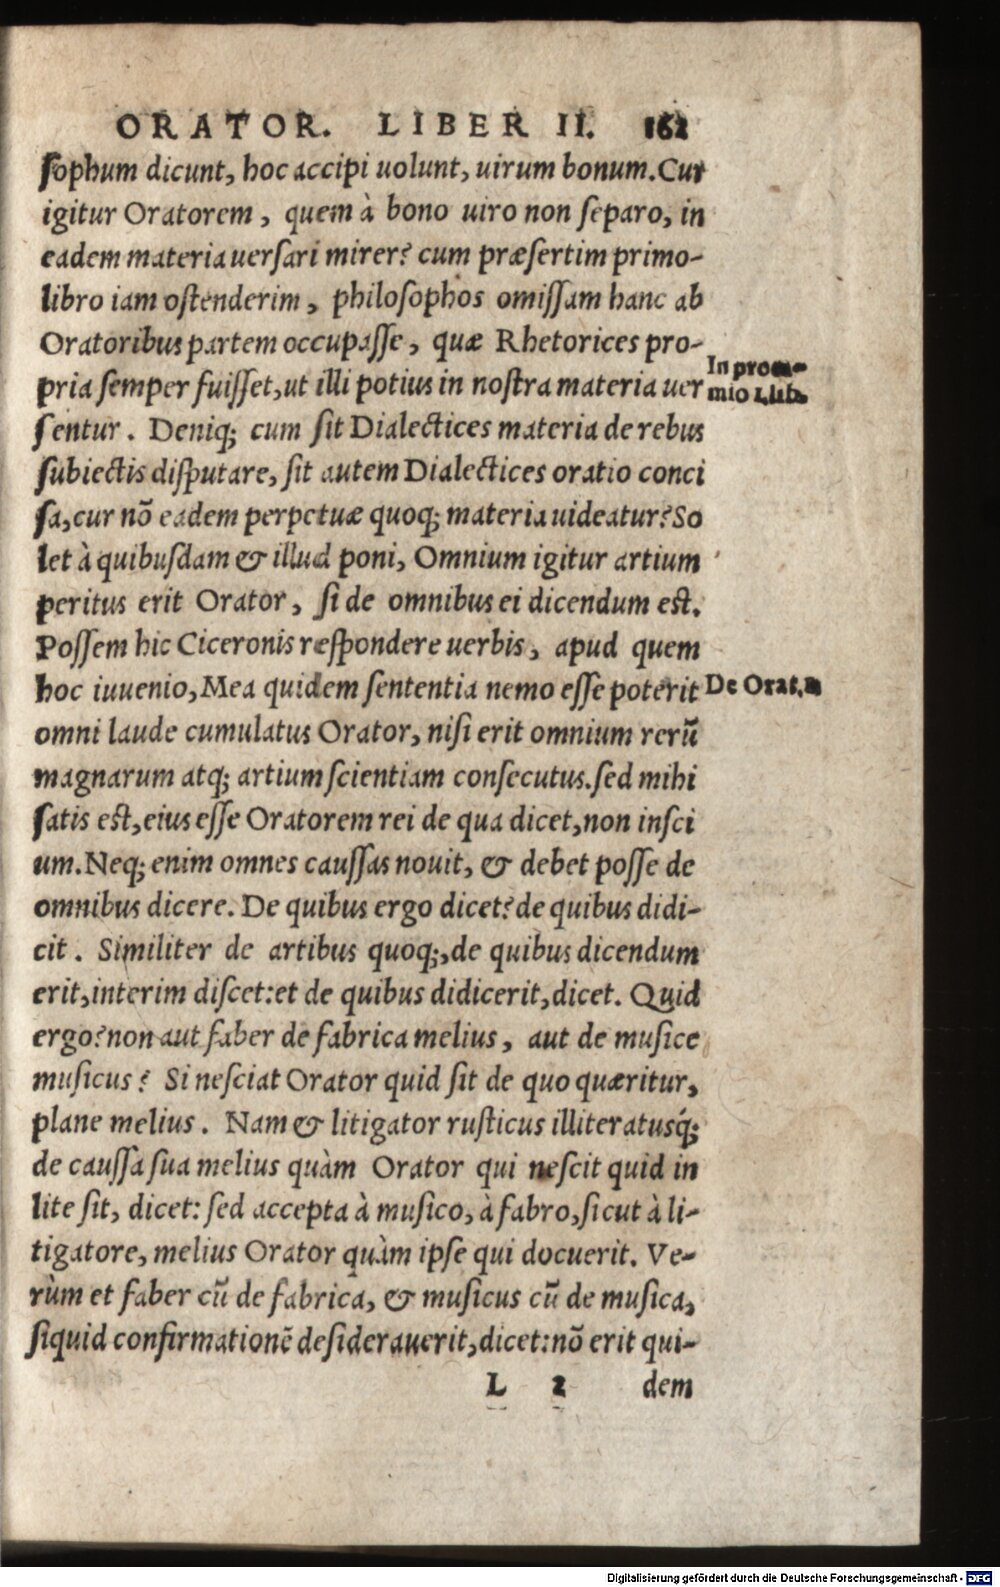 ORATOR. LIBER II. 162
sophum dicunt, hoc accipi uolunt, uirum bonum. Cur
igitur Oratorem, quem à bono uiro non separo, in
eadem materia uersari mirer? cum præsertim primo-
libro iam ostenderim, philosophos omissam hanc ab
Oratoribus partem occupasse, quæ Rhetorices pro-
pria semper fuisset, ut illi potius in nostra materia uer
In prooe-
mio 1.lib.
sentur. Deniq; cum sit Dialectices materia de rebus
subiectis disputare, sit autem Dialectices oratio conci
sa, cur nõ eadem perpetuæ quoq; materia uideatur? So
let à quibusdam & illud poni, Omnium igitur artium
peritus erit Orator, si de omnibus ei dicendum est.
Possem hic Ciceronis respondere uerbis, apud quem
hoc iuuenio, Mea quidem sententia nemo esse poterit
De Orat.
omni laude cumulatus Orator, nisi erit omnium rerũ
magnarum atq; artium scientiam consecutus. sed mihi
satis est, eius esse Oratorem rei de qua dicet, non insci
um. Neq; enim omnes caussas nouit, & debet posse de
omnibus dicere. De quibus ergo dicet? de quibus didi-
cit. Similiter de artibus quoq;, de quibus dicendum
erit, interim discet: et de quibus didicerit, dicet. Quid
ergo? non aut faber de fabrica melius, aut de musice
musicus? Si nesciat Orator quid sit de quo quæritur,
plane melius. Nam & litigator rusticus illiteratusq́;
de caussa sua melius quàm Orator qui nescit quid in
lite sit, dicet: sed accepta à musico, à fabro, sicut à li-
tigatore, melius Orator quàm ipse qui docuerit. Ve-
rùm et faber cũ de fabrica, & musicus cũ de musica,
siquid confirmationẽ desiderauerit, dicet: nõ erit qui-
L 2 dem
Digitalisierung gefördert durch die Deutsche Forschungsgemeinschaft - DFG